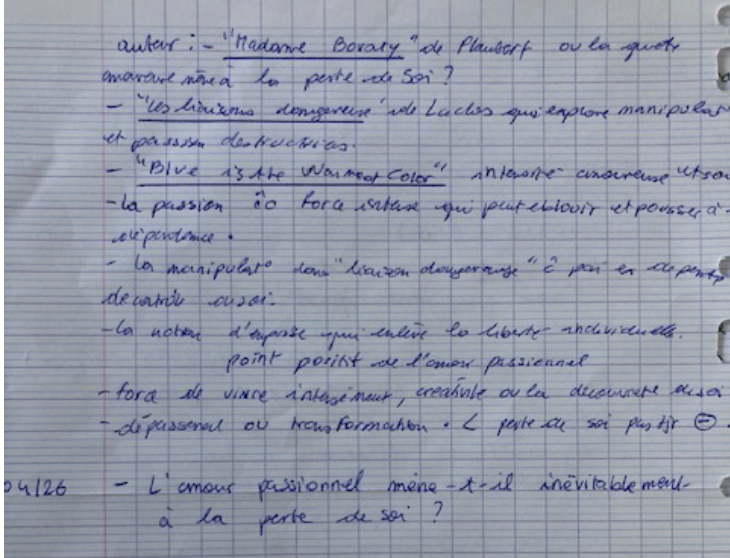 auteur : - "Madame Bovary" de Flaubert ou la quete
amoureuse mène à la perte de soi ?
- "Les liaisons dangereuse" de Laclos qui explore manipulat
et passion destructrices.
- "Blue is the Warmest Color" intensité amoureuse et son
- la passion co force intense qui peut eblouir et pousser à
dépendance.
- la manipulat° dans "liaison dangereuse" c
de contrôle de soi.
- la notion d'emprise qui enlève la liberté individuelle.
point positif de l'amour passionnel
- force de vivre intensément, créativité ou la découverte de soi
- dépassement ou transformation. < perte de soi pas tjr ⊖.
04/26 - L'amour passionnel mène-t-il inévitablement
à la perte de soi ?